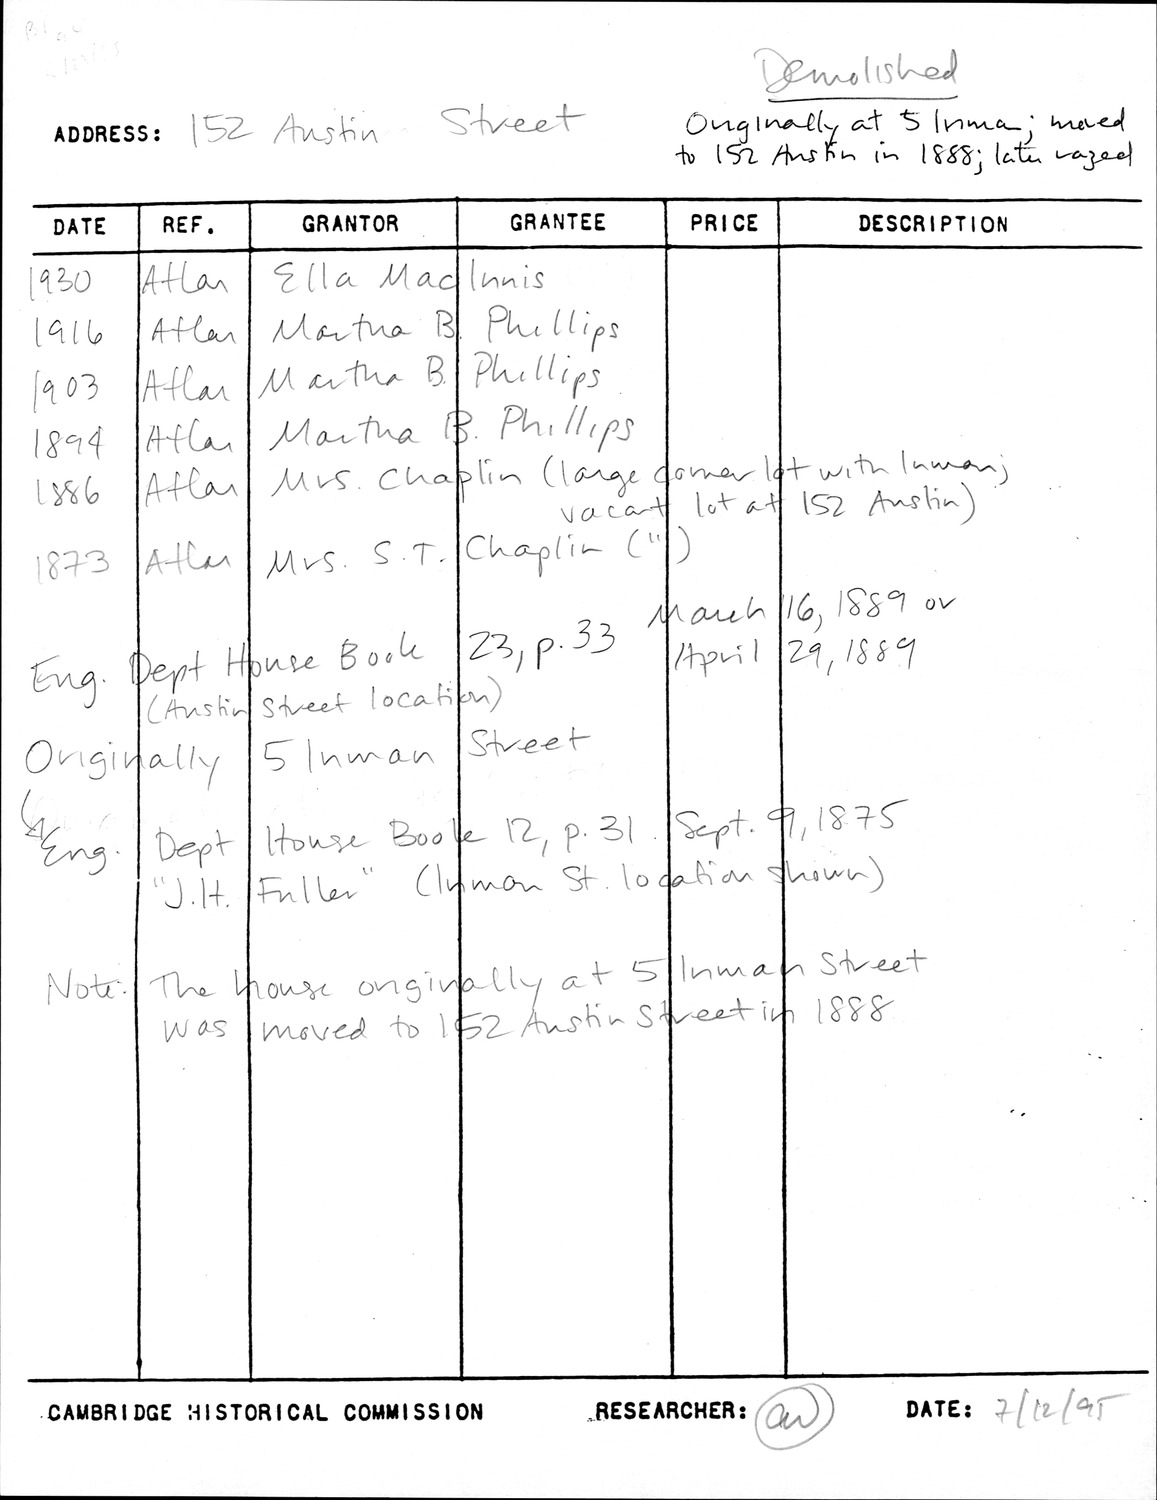 Demolished
ADDRESS: 152 Austin Street
Originally at 5 Inman; moved
to 152 Austin in 1888; later razed
DATE REF. GRANTOR GRANTEE PRICE DESCRIPTION
1930 Atlas Ella MacInnis
1916 Atlas Martha B. Phillips
1903 Atlas Martha B. Phillips
1894 Atlas Martha B. Phillips
1886 Atlas Mrs. Chaplin (large corner lot with Inman;
vacant lot at 152 Austin)
1873 Atlas Mrs. S.T. Chaplin (")
March 16, 1889 or
Eng. Dept House Book 23, p. 33 April 29, 1889
(Austin Street location)
Originally 5 Inman Street
Eng. Dept House Book 12, p. 31. Sept. 9, 1875
"J.H. Fuller" (Inman St. location shown)
Note: The house originally at 5 Inman Street
was moved to 152 Austin Street in 1888
CAMBRIDGE HISTORICAL COMMISSION RESEARCHER: DATE: 7/12/95